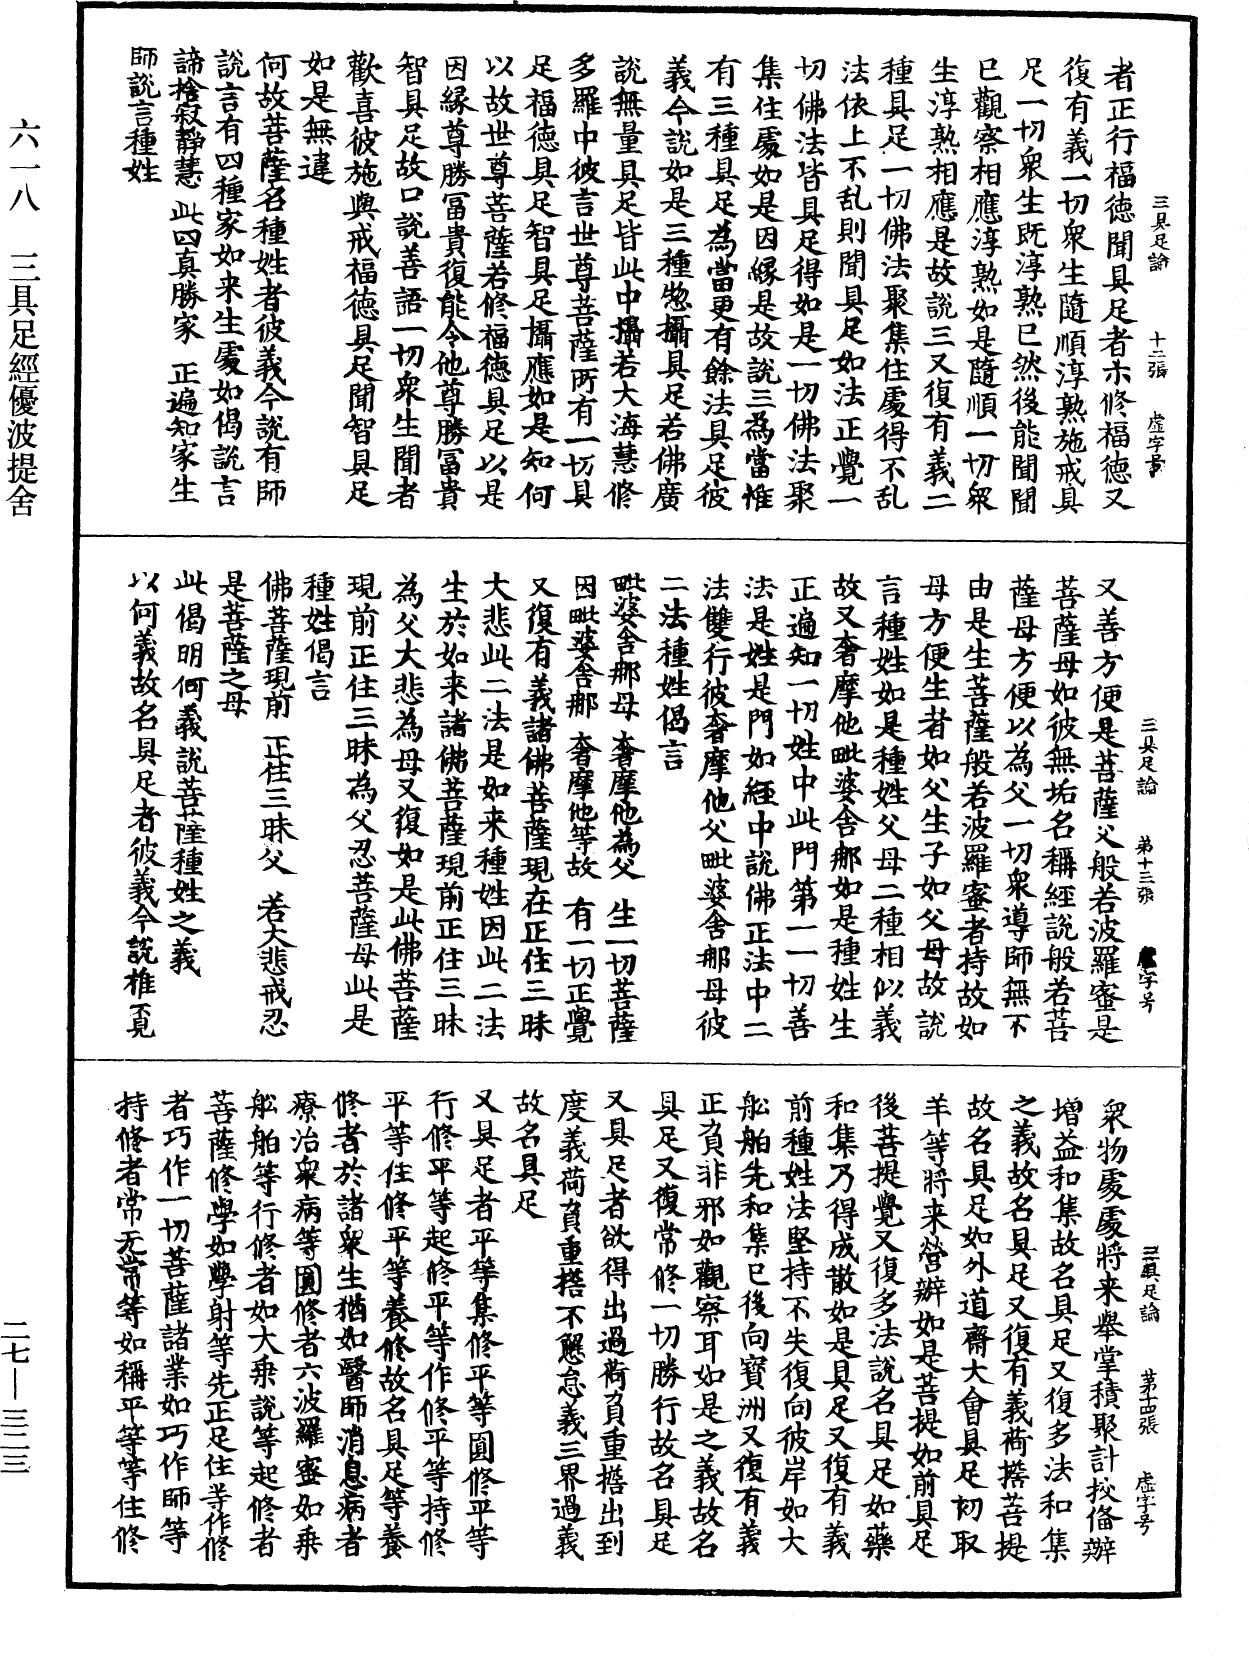 六一八　三具足經優波提舍
二七—三二三
三具足論　十二張　虛字号
者正行福德聞具足者亦修福德又
復有義一切衆生隨順淳熟施戒具
足一切衆生既淳熟已然後能聞聞
已觀察相應淳熟如是隨順一切衆
生淳熟相應是故說三又復有義二
種具足一切佛法聚集住處得不乱
法依上不乱則聞具足如法正覺一
切佛法皆具足得如是一切佛法聚
集住處如是因緣是故說三為當惟
有三種具足為當更有餘法具足彼
義今說如是三種惣攝具足若佛廣
說無量具足皆此中攝若大海慧修
多羅中彼言世尊菩薩所有一切具
足福德具足智具足攝應如是知何
以故世尊菩薩若修福德具足以是
因緣尊勝冨貴復能令他尊勝冨貴
智具足故口說善語一切衆生聞者
歡喜彼施與戒福德具足聞智具足
如是無違
何故菩薩名種姓者彼義今說有師
說言有四種家如来生處如偈說言
諦捨寂靜慧　此四真勝家　正遍知家生
師說言種姓
三具足論　第十三張　虛字号
又善方便是菩薩父般若波羅蜜是
菩薩母如彼無垢名稱經說般若菩
薩母方便以為父一切衆導師無不
由是生菩薩般若波羅蜜者持故如
母方便生者如父生子如父母故說
言種姓如是種姓父母二種相似義
故又奢摩他毗婆舍那如是種姓生
正遍知一切姓中此門第一一切善
法是姓是門如經中說佛正法中二
法雙行彼奢摩他父毗婆舍那母彼
二法種姓偈言
毗婆舍那母　奢摩他為父　生一切菩薩
因毗婆舍那　奢摩他等故　有一切正覺
又復有義諸佛菩薩現在正住三昧
大悲此二法是如来種姓因此二法
生於如来諸佛菩薩現前正住三昧
為父大悲為母又復如是此佛菩薩
現前正住三昧為父忍菩薩母此是
種姓偈言
佛菩薩現前　正住三昧父　若大悲戒忍
是菩薩之母
此偈明何義說菩薩種姓之義
以何義故名具足者彼義今說椎覓
三具足論　第十四張　虛字号
衆物處處將来舉掌積聚計挍俻辦
增益和集故名具足又復多法和集
之義故名具足又復有義荷擔菩提
故名具足如外道齋大會具足初取
羊等將来營辦如是菩提如前具足
後菩提覺又復多法說名具足如藥
和集乃得成散如是具足又復有義
前種姓法堅持不失復向彼岸如大
舩舶先和集已後向寶洲又復有義
正負非邪如觀察耳如是之義故名
具足又復常修一切勝行故名具足
又具足者欲得出過荷負重擔出到
度義荷負重擔不懈怠義三界過義
故名具足
又具足者平等集修平等圓修平等
行修平等起修平等作修平等持修
平等住修平等養修故名具足等養
修者於諸衆生猶如醫師消息病者
療治衆病等圓修者六波羅蜜如乗
舩舶等行修者如大乗說等起修者
菩薩修學如學射等先正足住等作修
者巧作一切菩薩諸業如巧作師等
持修者常无常等如稱平等等住修